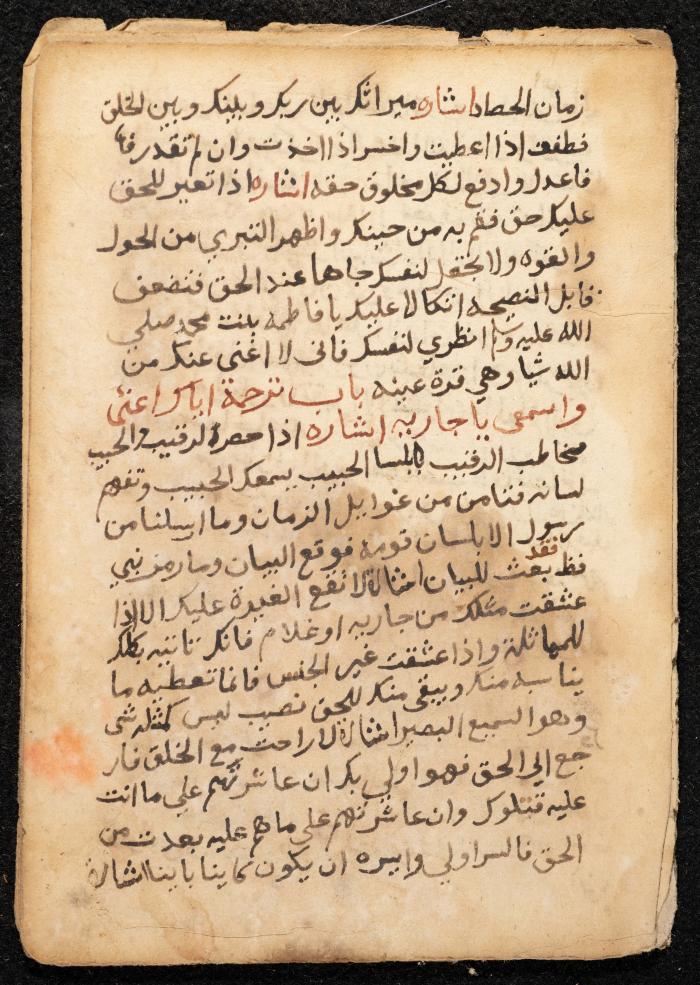 زمان الحصاد اشاره ميزانك بين ربك وبينك وبين الخلق
فطفف اذا اعطيت واخسر اذا اخذت وان لم تقدر فا
فاعدل وادفع لكل مخلوق حقه اشاره اذا تعير للحق
عليك حق فقم به من حينك واظهر التبري من الحول
والقوه ولا تجعل لنفسك جاها عند الحق فتضعف
قابل النصيحه اتكالا عليك يا فاطمه بنت محمد صلي
الله عليه وسلم انظري لنفسك فاني لا اغني عنك من
الله شيا وهي قرة عينه باب ترجمة اياك اعني
واسمعي يا جاريه اشاره اذا حضر الرقيب والحبيب
مخاطب الرقيب بلسا الحبيب يسمعك الحبيب وتفهم
لسانه فتامن من غوايل الزمان وما ارسلنا من
رسول الا بلسان قومه فوقع البيان وما رمز نبي
قط فقد بعث للبيان اشارة لا تقع الغيرة عليك الا اذا
عشقت مثلك من جاريه او غلام فانك تاتيه بكلك
للمماثلة واذا عشقت غير الجنس فانما تعطيه ما
يناسبه منك ويبقي منك للحق نصيب ليس كمثله شي
وهو السميع البصير اشارة لا راحت مع الخلق فار
جع الي الحق فهو اولي بك ان عاشرتهم علي ما انت
عليه قتلوك وان عاشرتهم علي ما هم عليه بعدت من
الحق فالسر اولي وايسره ان يكون كاينا باينا اشارة